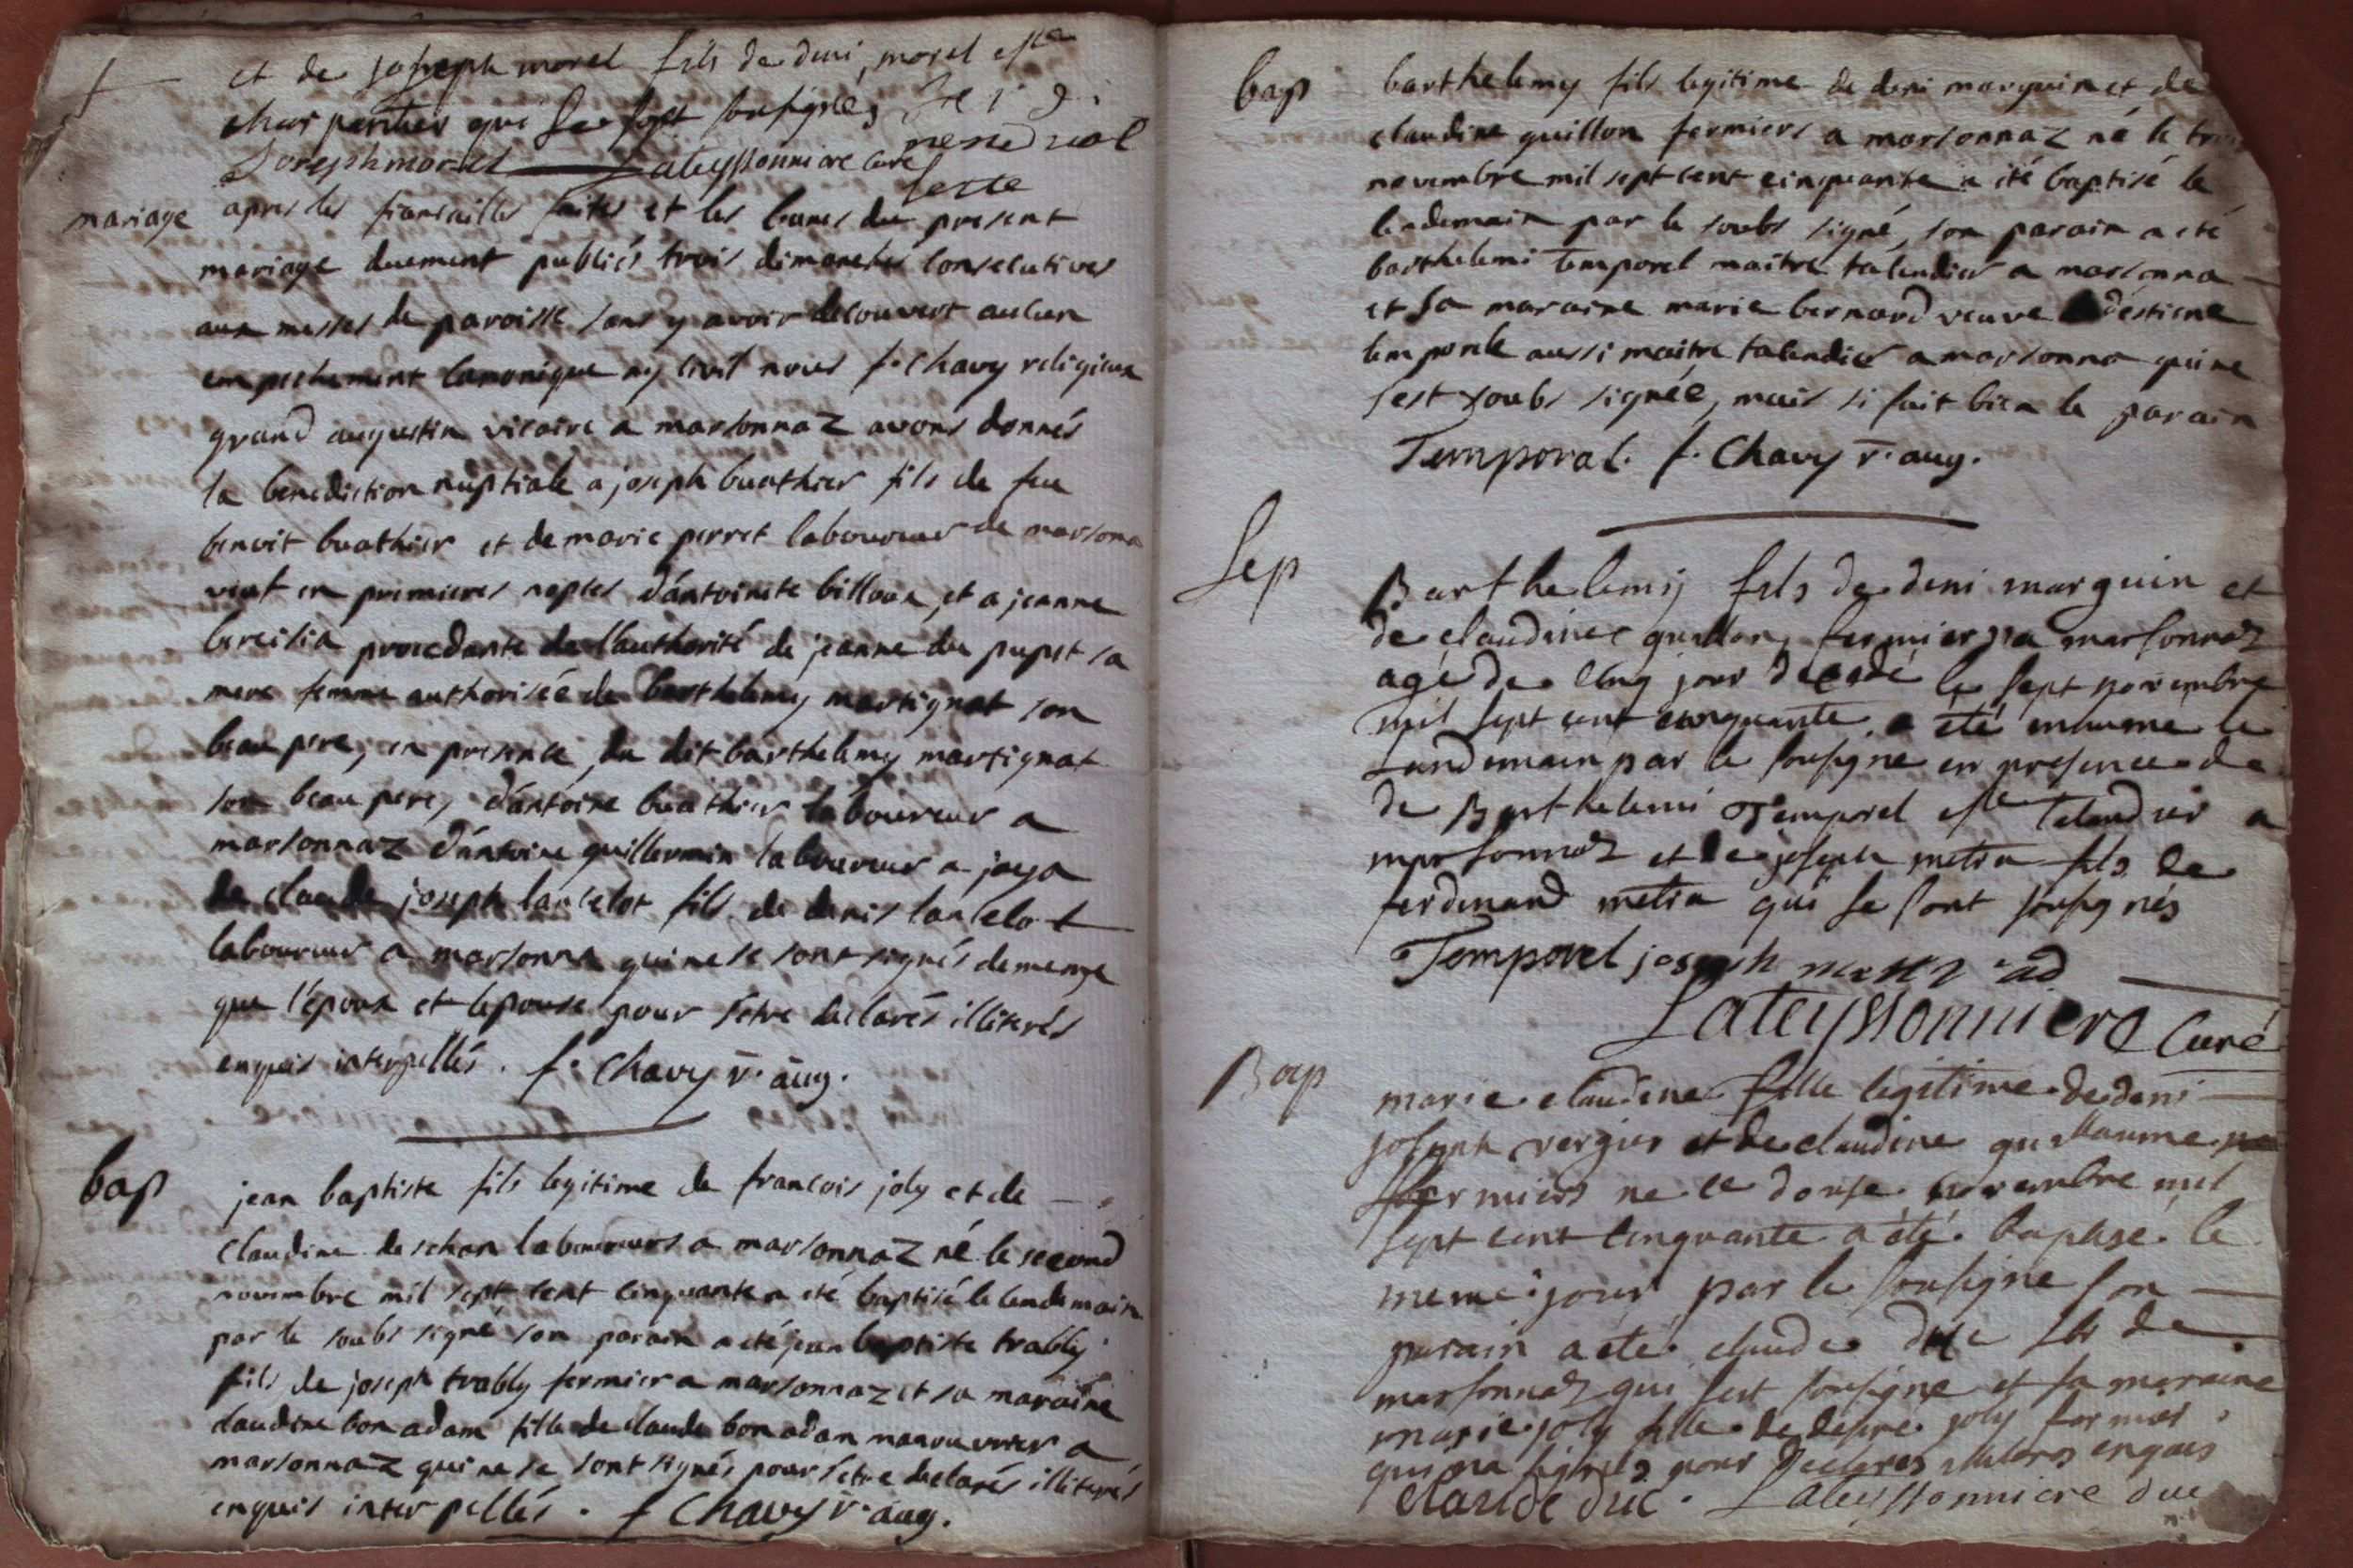 et de joseph morel fils de deni, morel
charpentier qui se sont sousignés
Josephmorel Lateyssonniere curé
mariage apres les fiansailles faites et les bans du present
mariage duement publiés trois dimanches consecutives
aux messes de paroisse sans y avoir decouvert aucun
empechement canonique ny civil nous f. chavy religieux
grand augustin vicaire a marsonnaz avons donnés
la benediction nuptiale a joseph buathier fils de feu
benoit buathier et de marie perret laboureur de marsona
veuf en premieres noptes d'antoinete billoux, et a jeanne
procedante de l'authorité de jeanne du pupet sa
mere femme authorisée de barthelemy martignat son
beau pere, en presence, du dit barthelemy martignat
son beau pere, d'antoine buathier laboureur a
marsonnaz d'antoine guillermin laboureur a jaya
de claude joseph lancelot fils de denis lancelot
laboureur a marsonna qui ne se sont signés de meme
que l'epoux et lepouse pour s'etre declarés illiterés
enquis interpellés. f. Chavy r. aug.
bap jean baptiste fils legitime de francois joly et de
claudine deschan laboureurs a marsonnaz né le second
novembre mil sept cent cinquante a eté baptisé le lendemain
par le soubs signé son parain a eté jean baptiste trably
fils de joseph trably fermier a marsonnaz et sa maraine
claudine bon adam fille de claude bon adam manouvrier a
marsonnaz qui ne se sont signés pour s'etre declarés illiterés
enquis interpellés. f Chavy r. aug.
bap barthelemy fils legitime de deni marguin et de
claudine guillon fermiers a marsonnaz né le
novembre mil sept cent cinquante a eté baptisé le
lendemain par le soubs signé, son parain a eté
barthelemi temporel maitre talendier a marsonna
et sa maraine marie bernard veuve d'estiene
temporele aussi maitre talendier a marsonna qui ne
s'est soubs signée, mais si fait bien le parain
Temporal. f. Chavy r. aug.
Sep Barthelemy fils de deni marguin et
de claudine guillon fermiers a marsonnaz
agé de cinq jour decedé le sept novembre
mil sept cent cinquante a été inhumé le
landemain par le sousigne en presence de
de Barthelemi Temporel talendier a
marsonnaz et de joseph metra fils de
ferdinand metra qui se sont sousignés
Temporel joseph
Lateyssonniere Curé
Bap marie claudine fille legitime de deni
joseph vergier et de claudine guillaume
fermiers ne le douse novembre mil
sept cent cinquante a été baptisé le
meme jour par le sousigne son
parain a été claude duc fils de
marsonnaz qui s'est sousigne et sa maraine
marie joly fille de joly fermier
qui na signés pour enquis
claude duc. Lateyssonniere